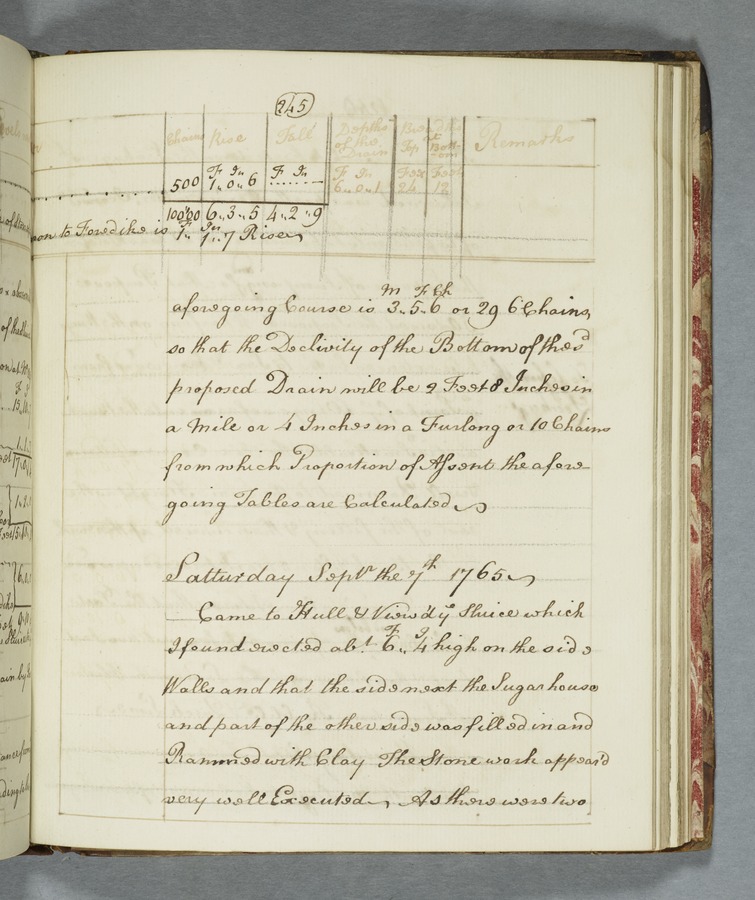 245
Chains Rise Fall Depths of the Drain Breadths at Top Bottom Remarks
F In F In F In Feet Feet
500 1,, 0,, 6 ........ 6,, 0,, 1 24 12
10000 6,, 3,, 5 4,, 2,, 9
on to Foredike is F 1,, In 1,, 7 Rise
M F Ch
aforegoing Course is 3,, 5,, 6 or 29 6 Chains
so that the Declivity of the Bottom of the sd
proposed Drain will be 2 Feet 8 Inches in
a Mile or 4 Inches in a Furlong or 10 Chains
from which Proportion of Assent the afore-
going Tables are Calculated
Satturday Septr the 7th 1765
Came to Hull & View'd ye Sluice which
F I
I found erected abt 6,, 4 high on the side
Walls and that the side next the Sugar house
and part of the other side was filled in and
Rammed with Clay The Stone work appear'd
very well Executed, As there were two